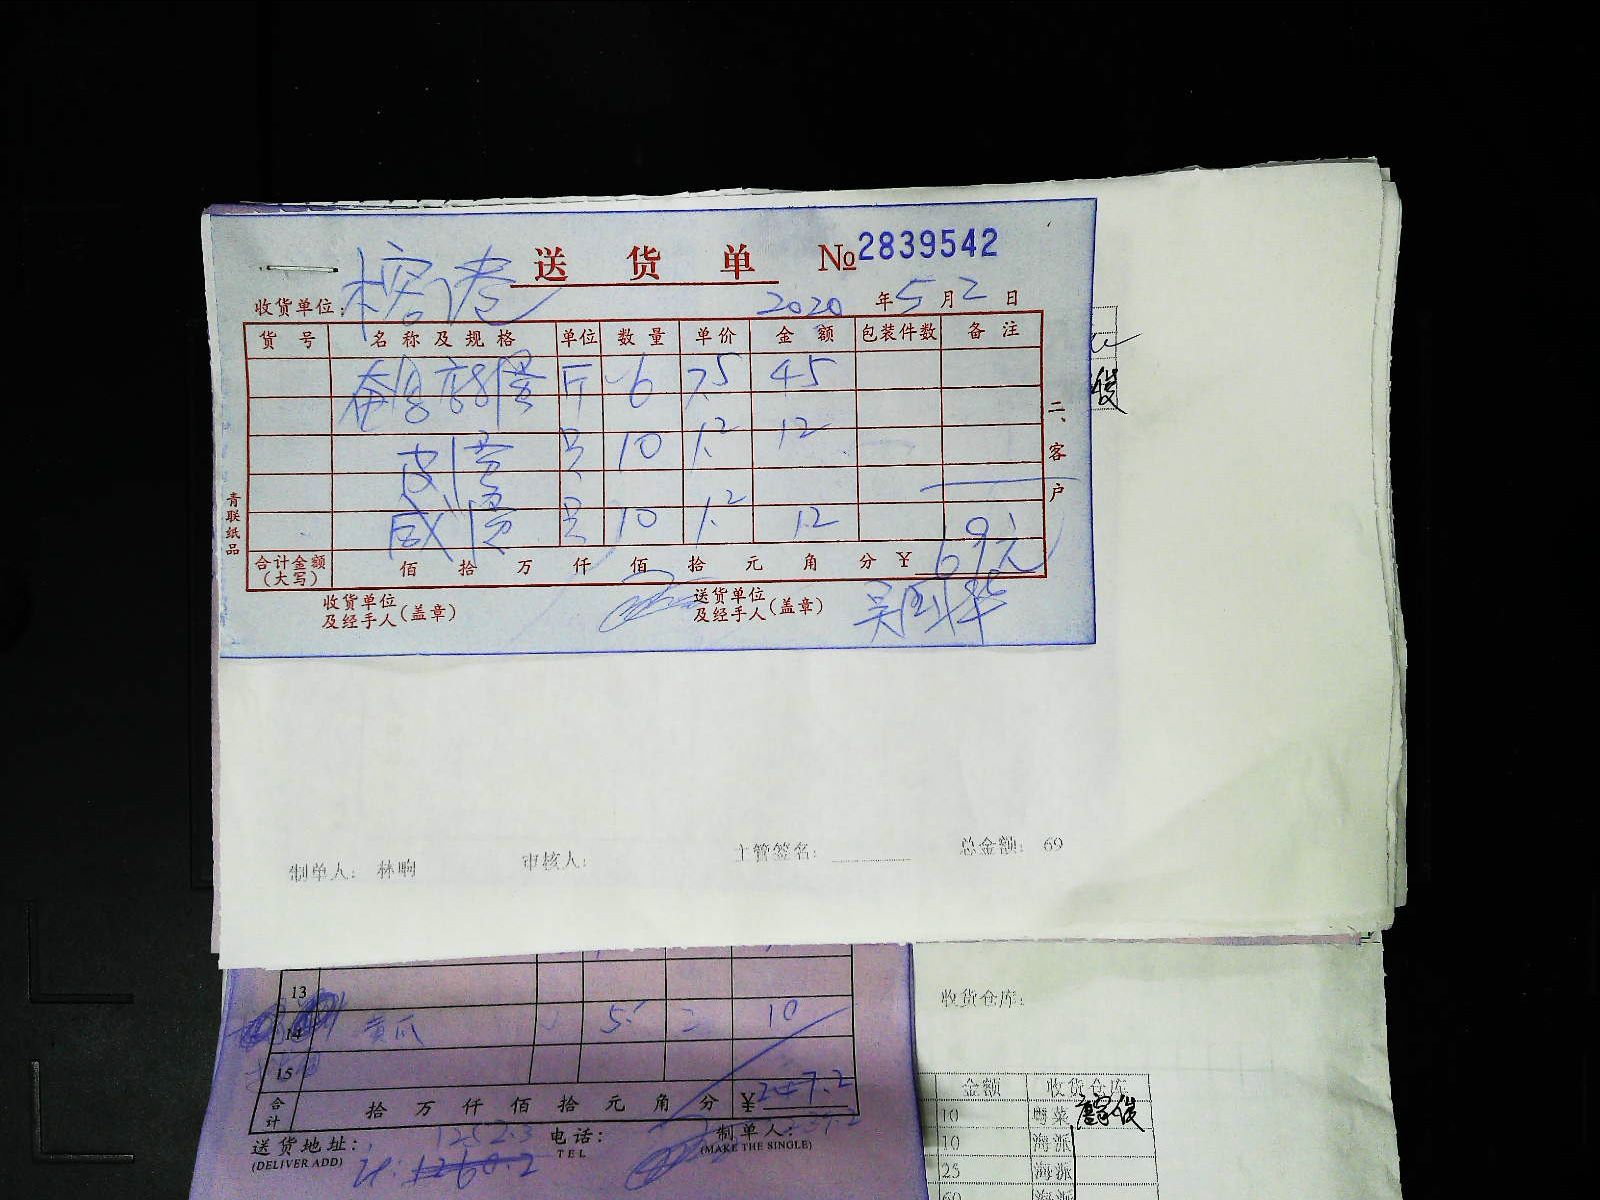 送货单 №2839542
收货单位：榕港
2020年5月2日
货号 名称及规格 单位 数量 单价 金额 包装件数 备注
斤 6 7.5 45
皮蛋 只 10 1.2 12
咸蛋 只 10 1.2 12
合计金额（大写） 佰 拾 万 仟 佰 拾 元 角 分 ￥69元
收货单位及经手人（盖章） 送货单位及经手人（盖章）
二、客户
青联纸品
俊
制单人： 林晌 审核人： 主管签名： 总金额： 69
13
14 黄瓜 5 二 10
15
合计 拾 万 仟 佰 拾 元 角 分 ￥
送货地址： 1252.3 电话： 制单人：
(DELIVER ADD) 1260.2 TEL (MAKE THE SINGLE)
收货仓库：
金额 收货仓库
10 粤菜
10 海派
25 海派
60 海派